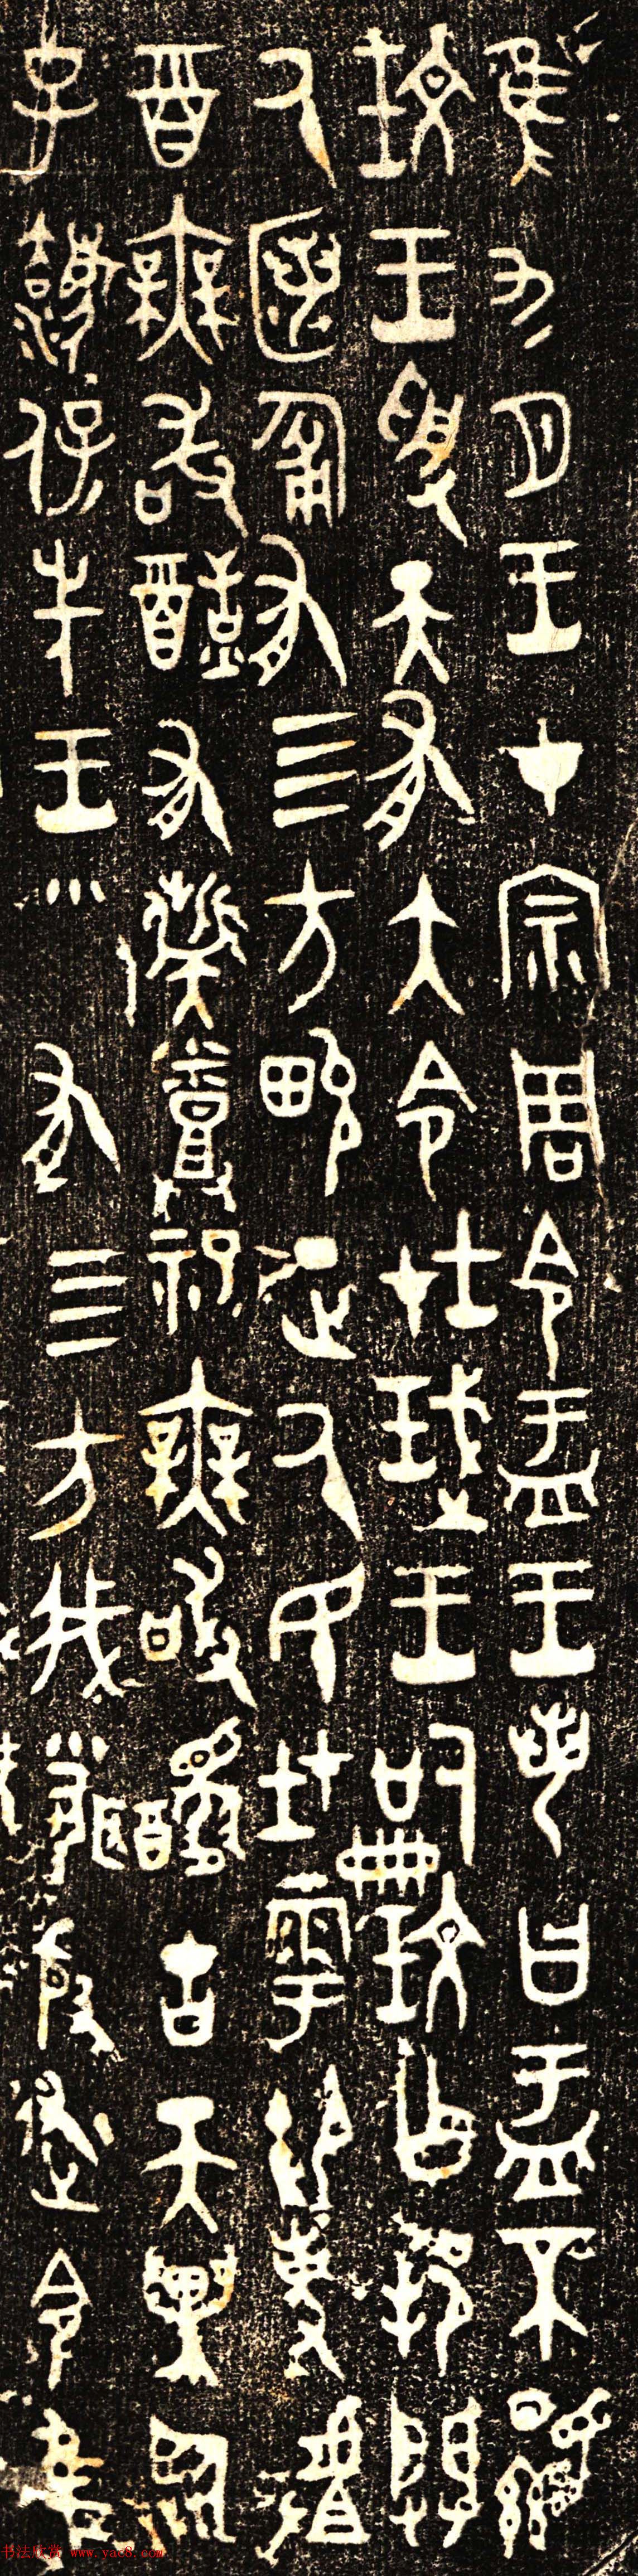 隹九月王才宗周令盂王若曰盂不顯
玟王受天有大令在珷王嗣玟乍邦闢
氒匿匍有四方畯正氒民在雩御事䖒
酉無敢酖有髭烝祀無敢醻古天異臨
子灋保先王有四方我聞殷述令隹
书法欣赏 www.yac8.com